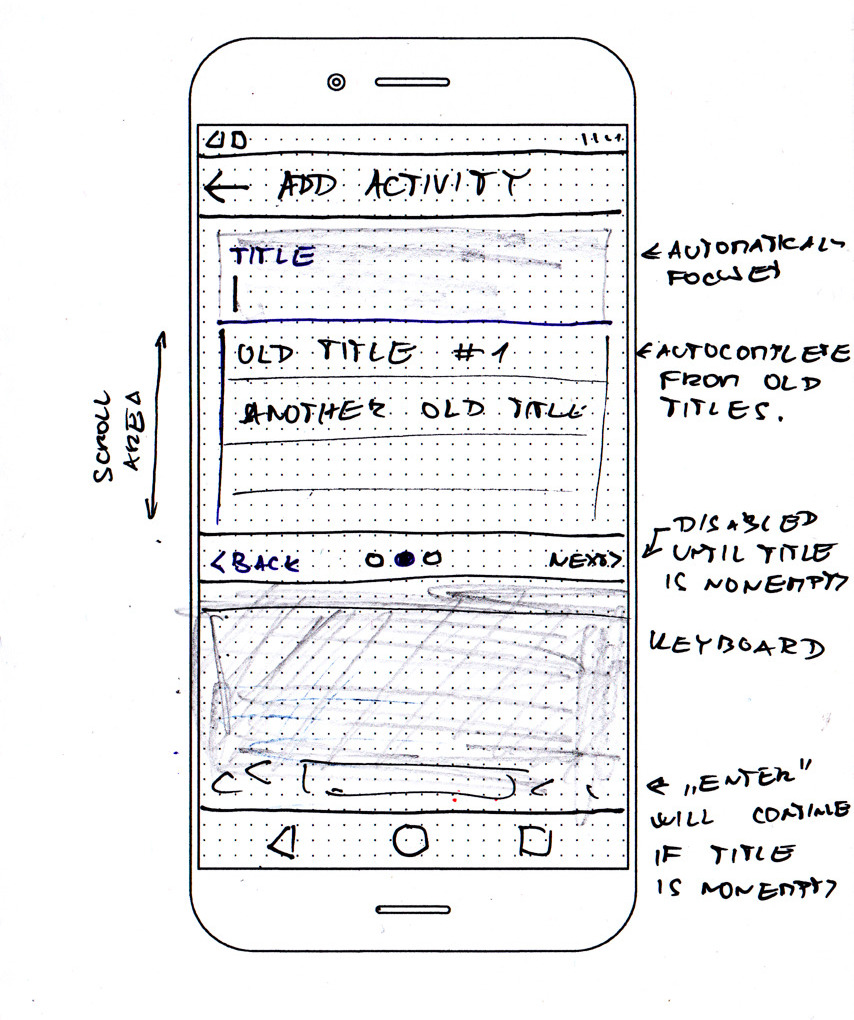 ADD ACTIVITY
TITLE
← AUTOMATICALY
FOCUSED
OLD TITLE #1
ANOTHER OLD TITLE
← AUTOCOMPLETE
FROM OLD
TITLES.
SCROLL
AREA
<BACK
NEXT>
DISABLED
UNTIL TITLE
IS NONEMPTY
KEYBOARD
← „ENTER"
WILL CONTINUE
IF TITLE
IS NONEMPTY